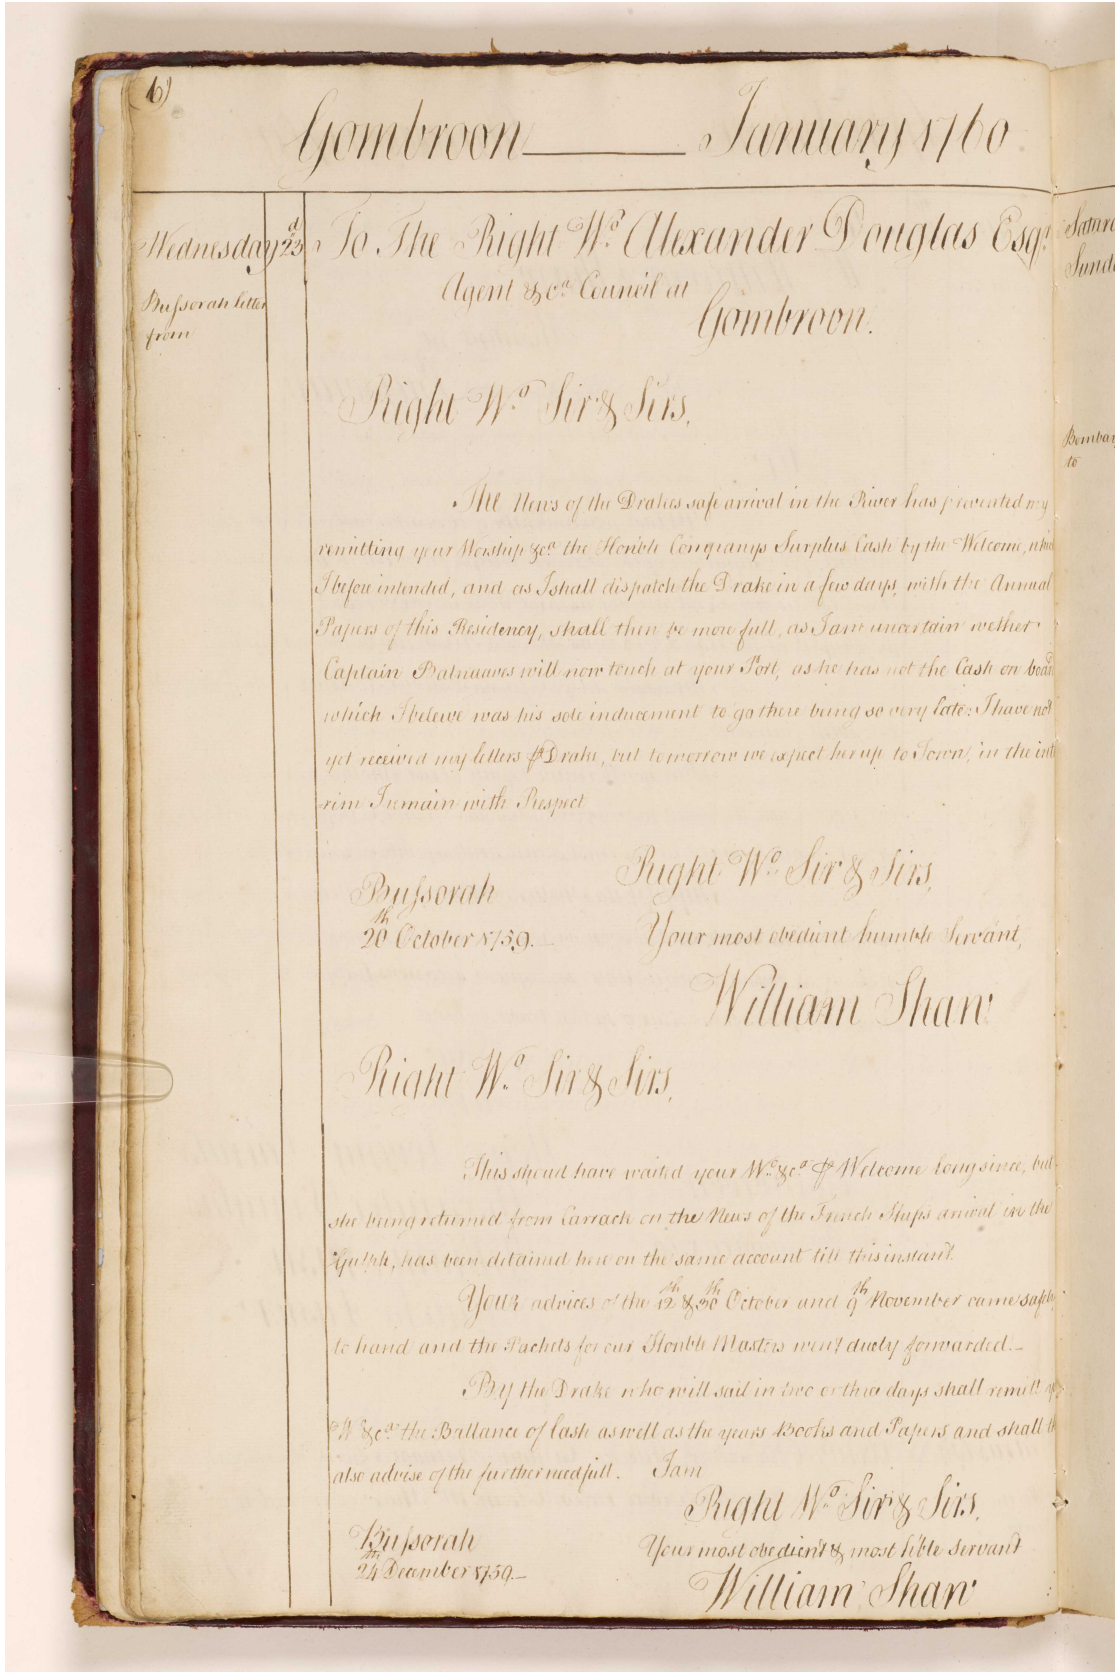 6)
Gombroon January 1760
Wednesday 23d To The Right Wo. Alexander Douglas Esqr.
Bussorah letter from
Agent &ca. Council at
Gombroon.
Right Wo. Sir & Sirs,
The News of the Drakes safe arrival in the River has prevented my
remitting your Worship &ca. the Honble Companys Surplus Cash by the Welcome, which
I before intended, and as I shall dispatch the Drake in a few days, with the Annual
Papers of this Residency, shall then be more full, as I am uncertain wether
Captain Balnaaves will now touch at your Port, as he has not the Cash on board
which I beleive was his sole inducement to go there being so very late: I have not
yet received my letters ⅌ Drake, but tomorrow we expect her up to Town, in the inte
rim I remain with Respect
Right Wo. Sir & Sirs,
Bussorah
20th October 1759. Your most obedient humble Servant,
William Shaw
Right Wo. Sir & Sirs,
This shoud have waited your Wo. &ca. ⅌ Welcome long since, but
she being returned from Carrack on the News of the French Ships arrival in the
Gulph, has been detained here on the same account till this instant.
Your advices of the 12th & 30th October and 9th November came safely
to hand and the Packets for our Honble Masters went duely forwarded.
By the Drake who will sail in two or three days shall remitt
W &ca. the Ballance of Cash as well as the years Books and Papers and shall
also advise of the further needfull. I am
Right Wo. Sir & Sirs,
Bussorah Your most obedient & most hble Servant
24th December 1759.
William Shaw
Saturd
Sund
Bombay
to